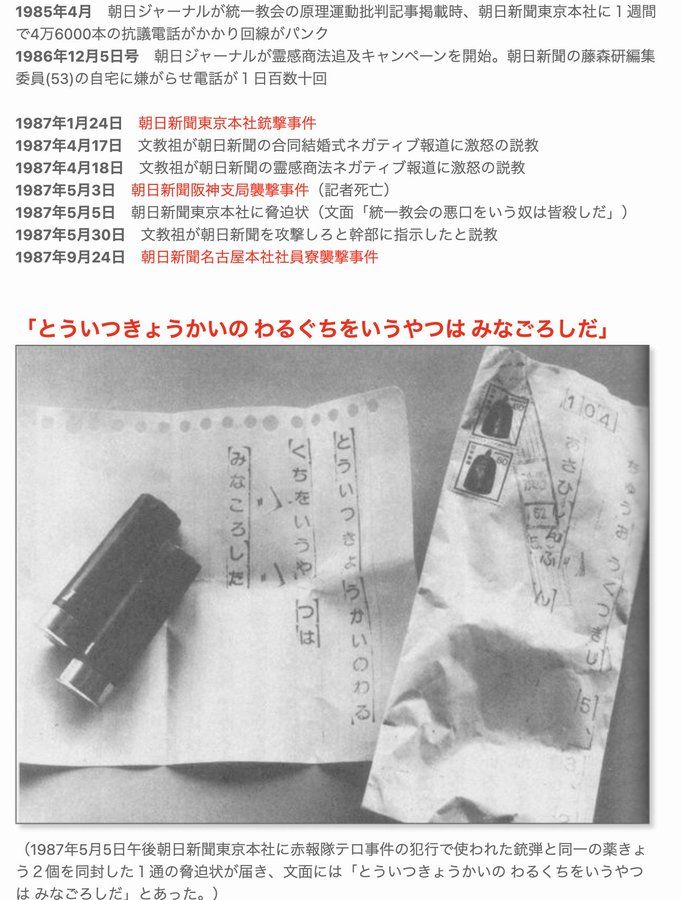 1985年4月　朝日ジャーナルが統一教会の原理運動批判記事掲載時、朝日新聞東京本社に１週間
で4万6000本の抗議電話がかかり回線がパンク
1986年12月5日号　朝日ジャーナルが霊感商法追及キャンペーンを開始。朝日新聞の藤森研編集
委員(53)の自宅に嫌がらせ電話が１日百数十回
1987年1月24日　朝日新聞東京本社銃撃事件
1987年4月17日　文教祖が朝日新聞の合同結婚式ネガティブ報道に激怒の説教
1987年4月18日　文教祖が朝日新聞の霊感商法ネガティブ報道に激怒の説教
1987年5月3日　朝日新聞阪神支局襲撃事件（記者死亡）
1987年5月5日　朝日新聞東京本社に脅迫状（文面「統一教会の悪口をいう奴は皆殺しだ」）
1987年5月30日　文教祖が朝日新聞を攻撃しろと幹部に指示したと説教
1987年9月24日　朝日新聞名古屋本社社員寮襲撃事件
「とういつきょうかいの わるぐちをいうやつは みなごろしだ」
とういつきょうかいのわる
ぐちをいうやつは
みなごろしだ
104
ちゅうおうくつきじ
5、3、
あさひしんぶん
60
60
（1987年5月5日午後朝日新聞東京本社に赤報隊テロ事件の犯行で使われた銃弾と同一の薬きょ
う２個を同封した１通の脅迫状が届き、文面には「とういつきょうかいの わるぐちをいうやつ
は みなごろしだ」とあった。）